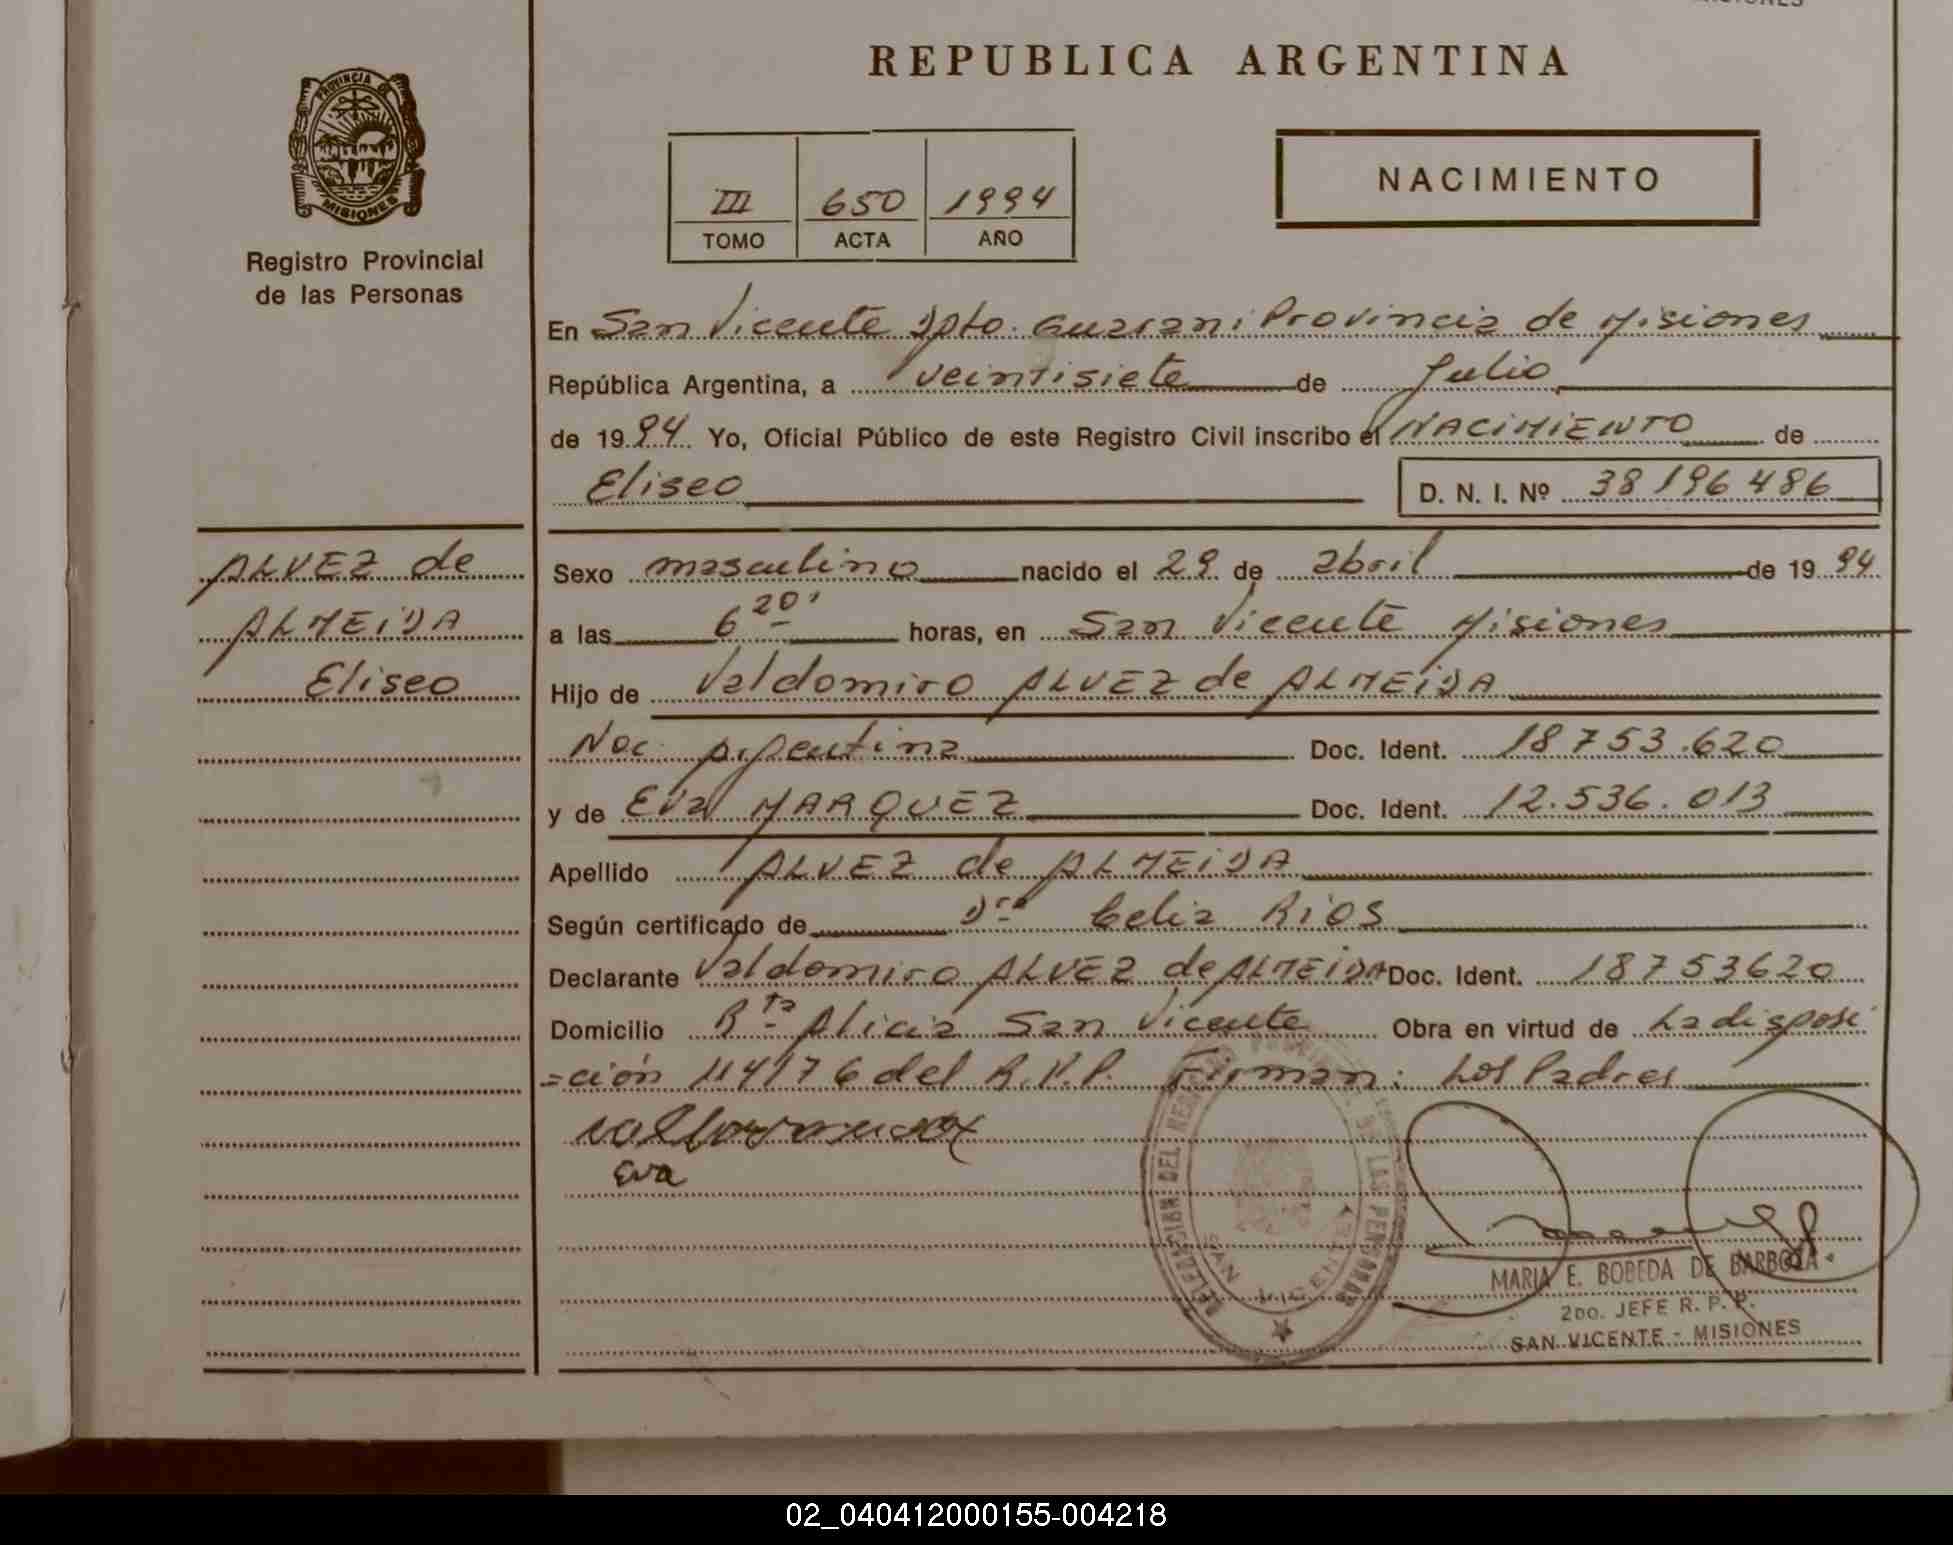 REPUBLICA ARGENTINA
PROVINCIA DE
MISIONES
Registro Provincial
de las Personas
III 650 1994
TOMO ACTA AÑO
NACIMIENTO
En San Vicente Dpto. Guarani Provincia de Misiones
República Argentina, a veintisiete de Julio
de 1994 Yo, Oficial Público de este Registro Civil inscribo el NACIMIENTO de
Eliseo D. N. I. Nº 38196486
ALVEZ de
ALMEIDA
Eliseo
Sexo masculino nacido el 29 de abril de 1994
a las 6 20' horas, en San Vicente Misiones
Hijo de Valdomiro ALVEZ de ALMEIDA
Nac. Argentina Doc. Ident. 18753.620
y de Eva MARQUEZ Doc. Ident. 12.536.013
Apellido ALVEZ de ALMEIDA
Según certificado de Dra Celia Rios
Declarante Valdomiro ALVEZ de ALMEIDA Doc. Ident. 18753620
Domicilio Alicia San Vicente Obra en virtud de La disposi
=ción 114/76 del R.P.P. Firman: Los Padres
Eva
SAN VICENTE
MARIA E. BOBEDA DE BARBOZA
2DO. JEFE R. P. P.
SAN VICENTE - MISIONES
02_040412000155-004218